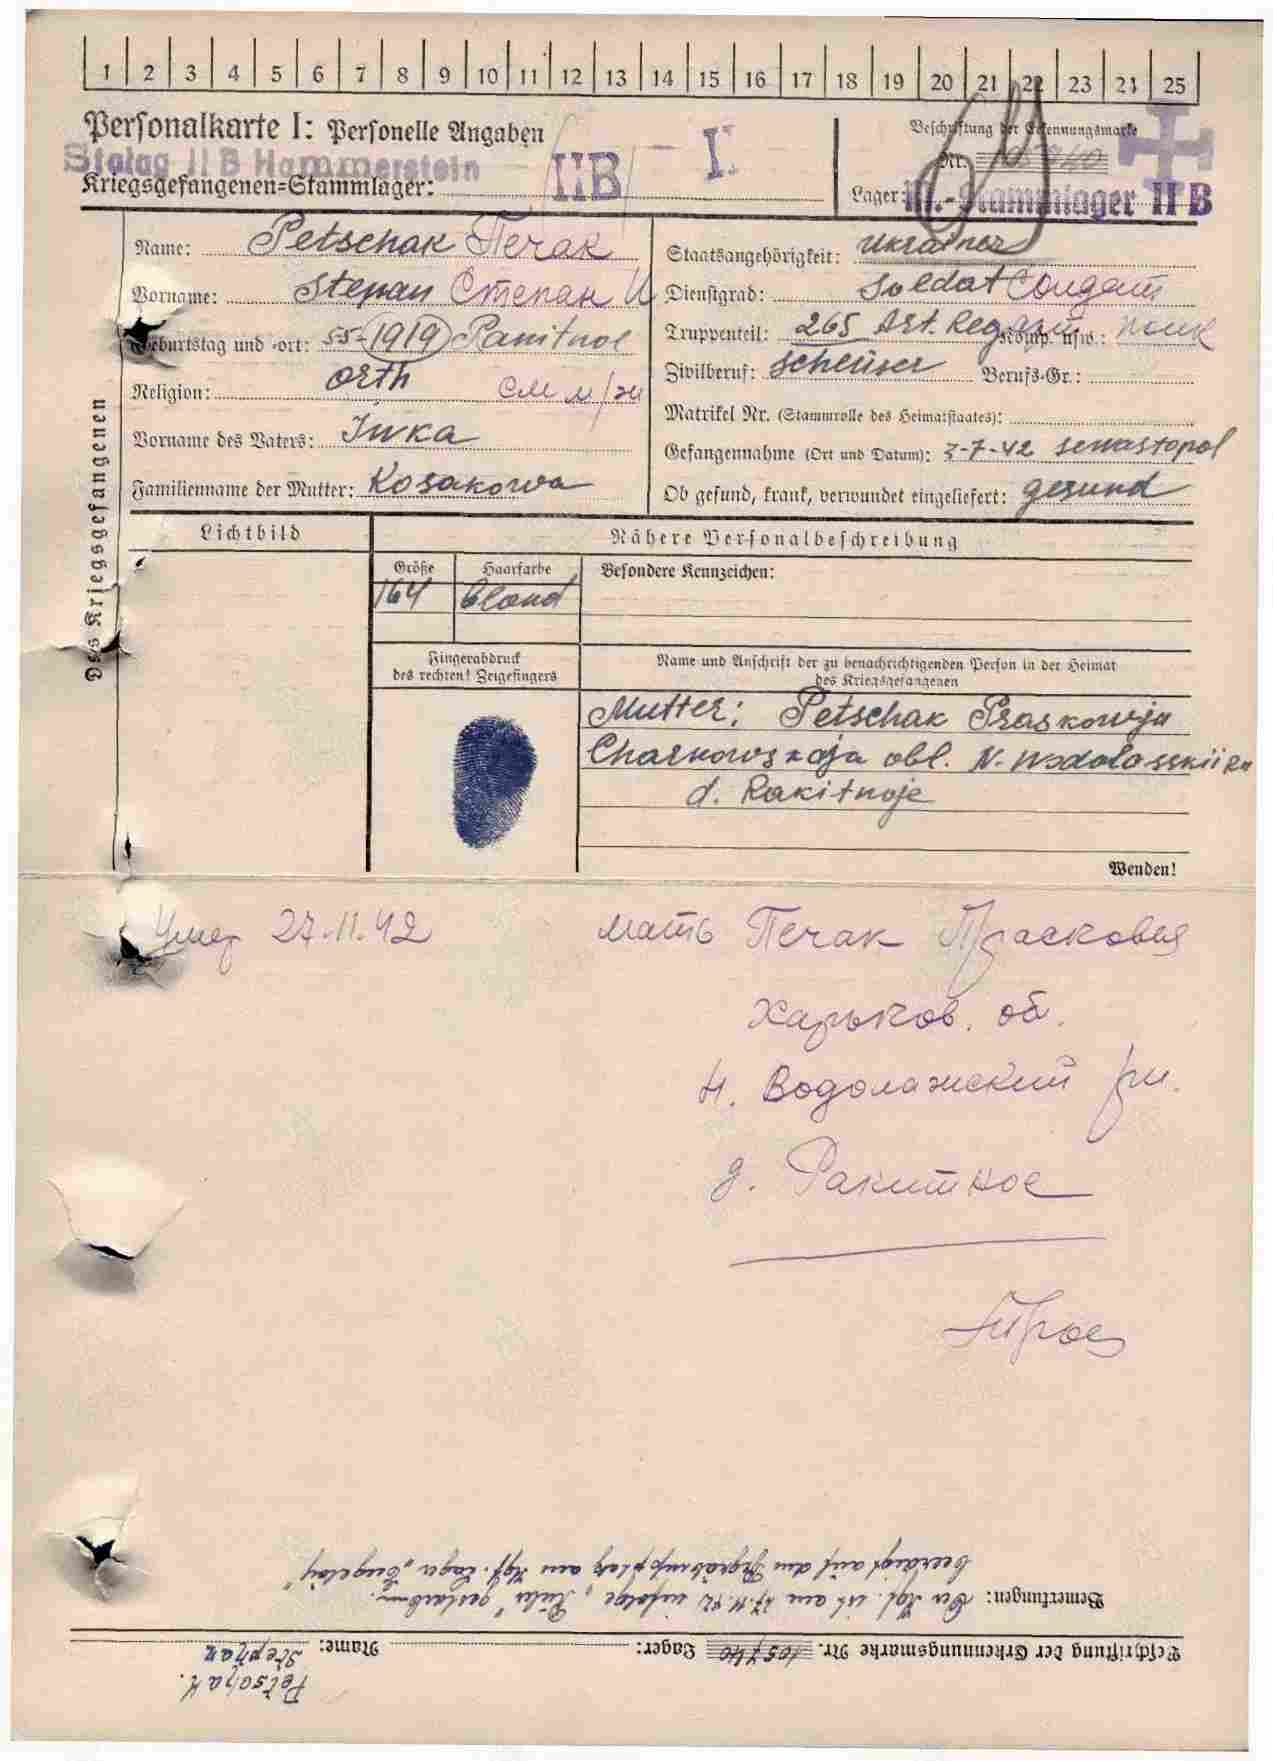 1 2 3 4 5 6 7 8 9 10 11 12 13 14 15 16 17 18 19 20 21 22 23 24 25
Personalkarte I: Personelle Angaben
Stalag II B Hammerstein
IIB
I.
Kriegsgefangenen=Stammlager:
Beschriftung der Erkennungsmarke
Nr. 105740
Lager: M.-Stammlager II B
Des Kriegsgefangenen
Name: Petschak Печак
Vorname: Stepan Степан И
Geburtstag und -ort: 5-5-1919
Religion: orth
Vorname des Vaters: Iwka
Familienname der Mutter: Kosakowa
Staatsangehörigkeit: Ukrainer
Dienstgrad: Soldat Солдат
Truppenteil: 265 Art. Reg. Komp. usw.: полк
Zivilberuf: Berufs-Gr.:
Matrikel Nr. (Stammrolle des Heimatstaates):
Gefangennahme (Ort und Datum): 3-7-42 Sewastopol
Ob gesund, krank, verwundet eingeliefert: gesund
Lichtbild
Nähere Personalbeschreibung
Größe Haarfarbe Besondere Kennzeichen:
164 blond
Fingerabdruck
des rechten! Zeigefingers
Name und Anschrift der zu benachrichtigenden Person in der Heimat
des Kriegsgefangenen
Mutter: Petschak Praskowja
Charkowskaja obl. N-Wodolasskii
d. Rakitnoje
Wenden!
Умер 27.11.42
мать Печак Прасковия
Харьков. об.
Н. Водолажский рн.
д. Ракитное
Beschriftung der Erkennungsmarke Nr. 105740 Lager: Name: Petschak.
Stephan
Bemerkungen: Der Kgf. ist am 27.11.42 infolge gestorben.
beerdigt auf dem am Kgf. Lager